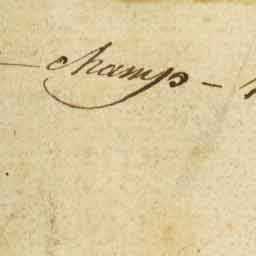 — Champ –